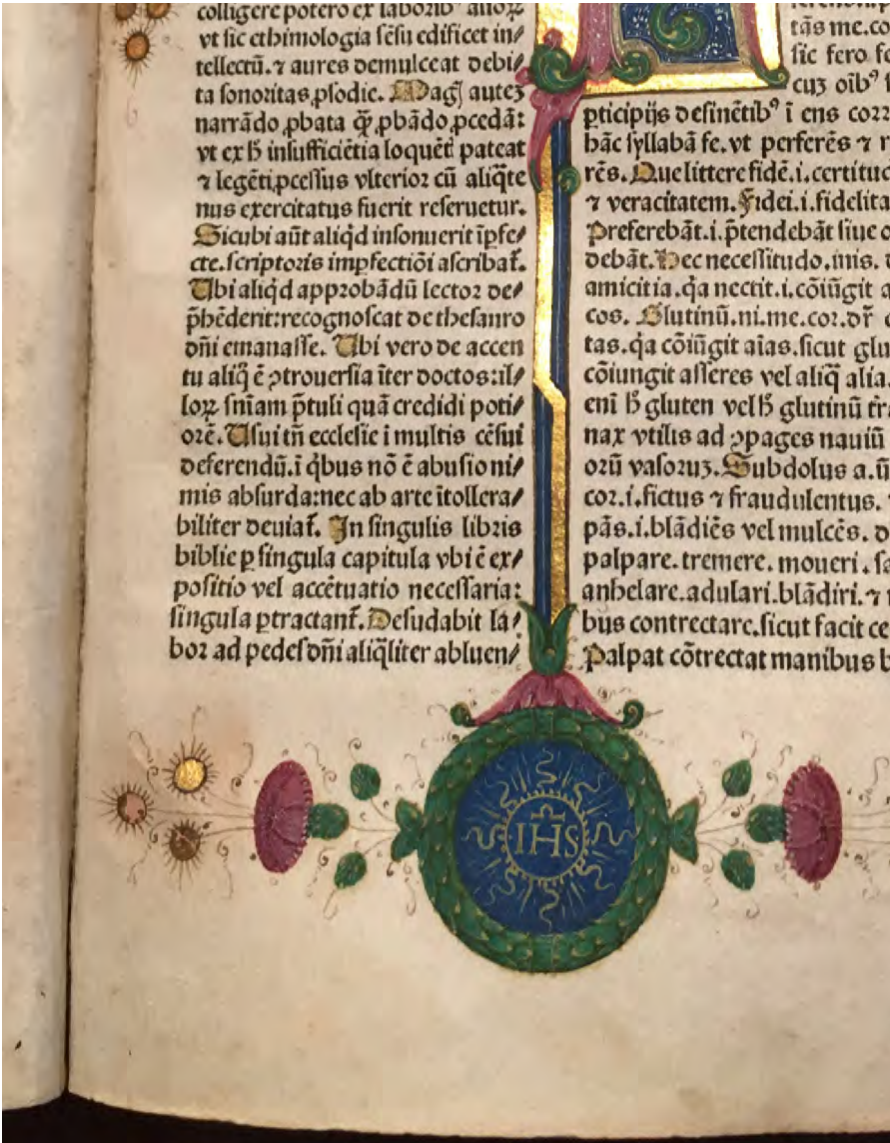 colligere potero ex laborib⁹ alioꝝ
vt sic ethimologia sēsu edificet in/
tellectū.⁊ aures demulceat debi/
ta sonoritas ꝓsodie. Magꝭ auteꝫ
narrādo ꝓbata qꝫ̄ ꝓbādo ꝓcedā:
vt ex ħ insufficiētia loquēti pateat
⁊ legēti ꝓcessus vlterior cū aliq̄te
nus exercitatus fuerit reseruetur.
Sicubi aūt aliq̇d insonuerit īpfe/
cte.scriptoris impfectiōi ascribat̄.
Ubi aliq̇d approbādū lector de/
p̄hēderit:recognoscat de thesauro
dn̄i emanasse. Ubi vero de accen
tu aliq̄ ē ꝯtrouersia īter doctos:il/
loꝝ sn̄iam p̄tuli quā credidi poti/
orē. Usui tn̄ ecclesie i multis cēsui
deferendū.ī q̇bus nō ē abusio ni/
mis absurda:nec ab arte ītollera/
biliter deuiat̄. In singulis libris
biblie ꝑ singula capitula vbi ē ex/
positio vel accētuatio necessaria:
singula ꝑtractant̄. Desudabit la/
bor ad pedes dn̄i aliq̄liter abluen/
tās me.co
sic fero fe
cuꝫ oīb⁹
ꝑticipijs desinētib⁹ ī ens corr
hāc syllabā fe.vt perferēs ⁊ r
rēs. Que littere fidē.i.certituc
⁊ veracitatem. Fidei.i.fidelita
Preferebāt.i.p̄tendebāt siue o
debāt. Hec necessitudo.inis.
amicitia.q̇a nectit.i.cōiūgit a
cos. Glutinū.ni.me.cor.dr̄
tas.q̇a cōiūgit aīas.sicut glu
cōiungit asseres vel aliq̄ alia.
enī ħ gluten vel ħ glutinū t̄ra
nax vtilis ad ꝯpages nauiū
orū vasoruꝫ. Subdolus a.ū
cor.i.fictus ⁊ fraudulentus.
pās.i.blādiēs vel mulcēs. d
palpare.tremere.moueri.sa
anhelare.adulari.blādiri.⁊ 
bus contrectare.sicut facit ce
Palpat cōtrectat manibus b
IHS